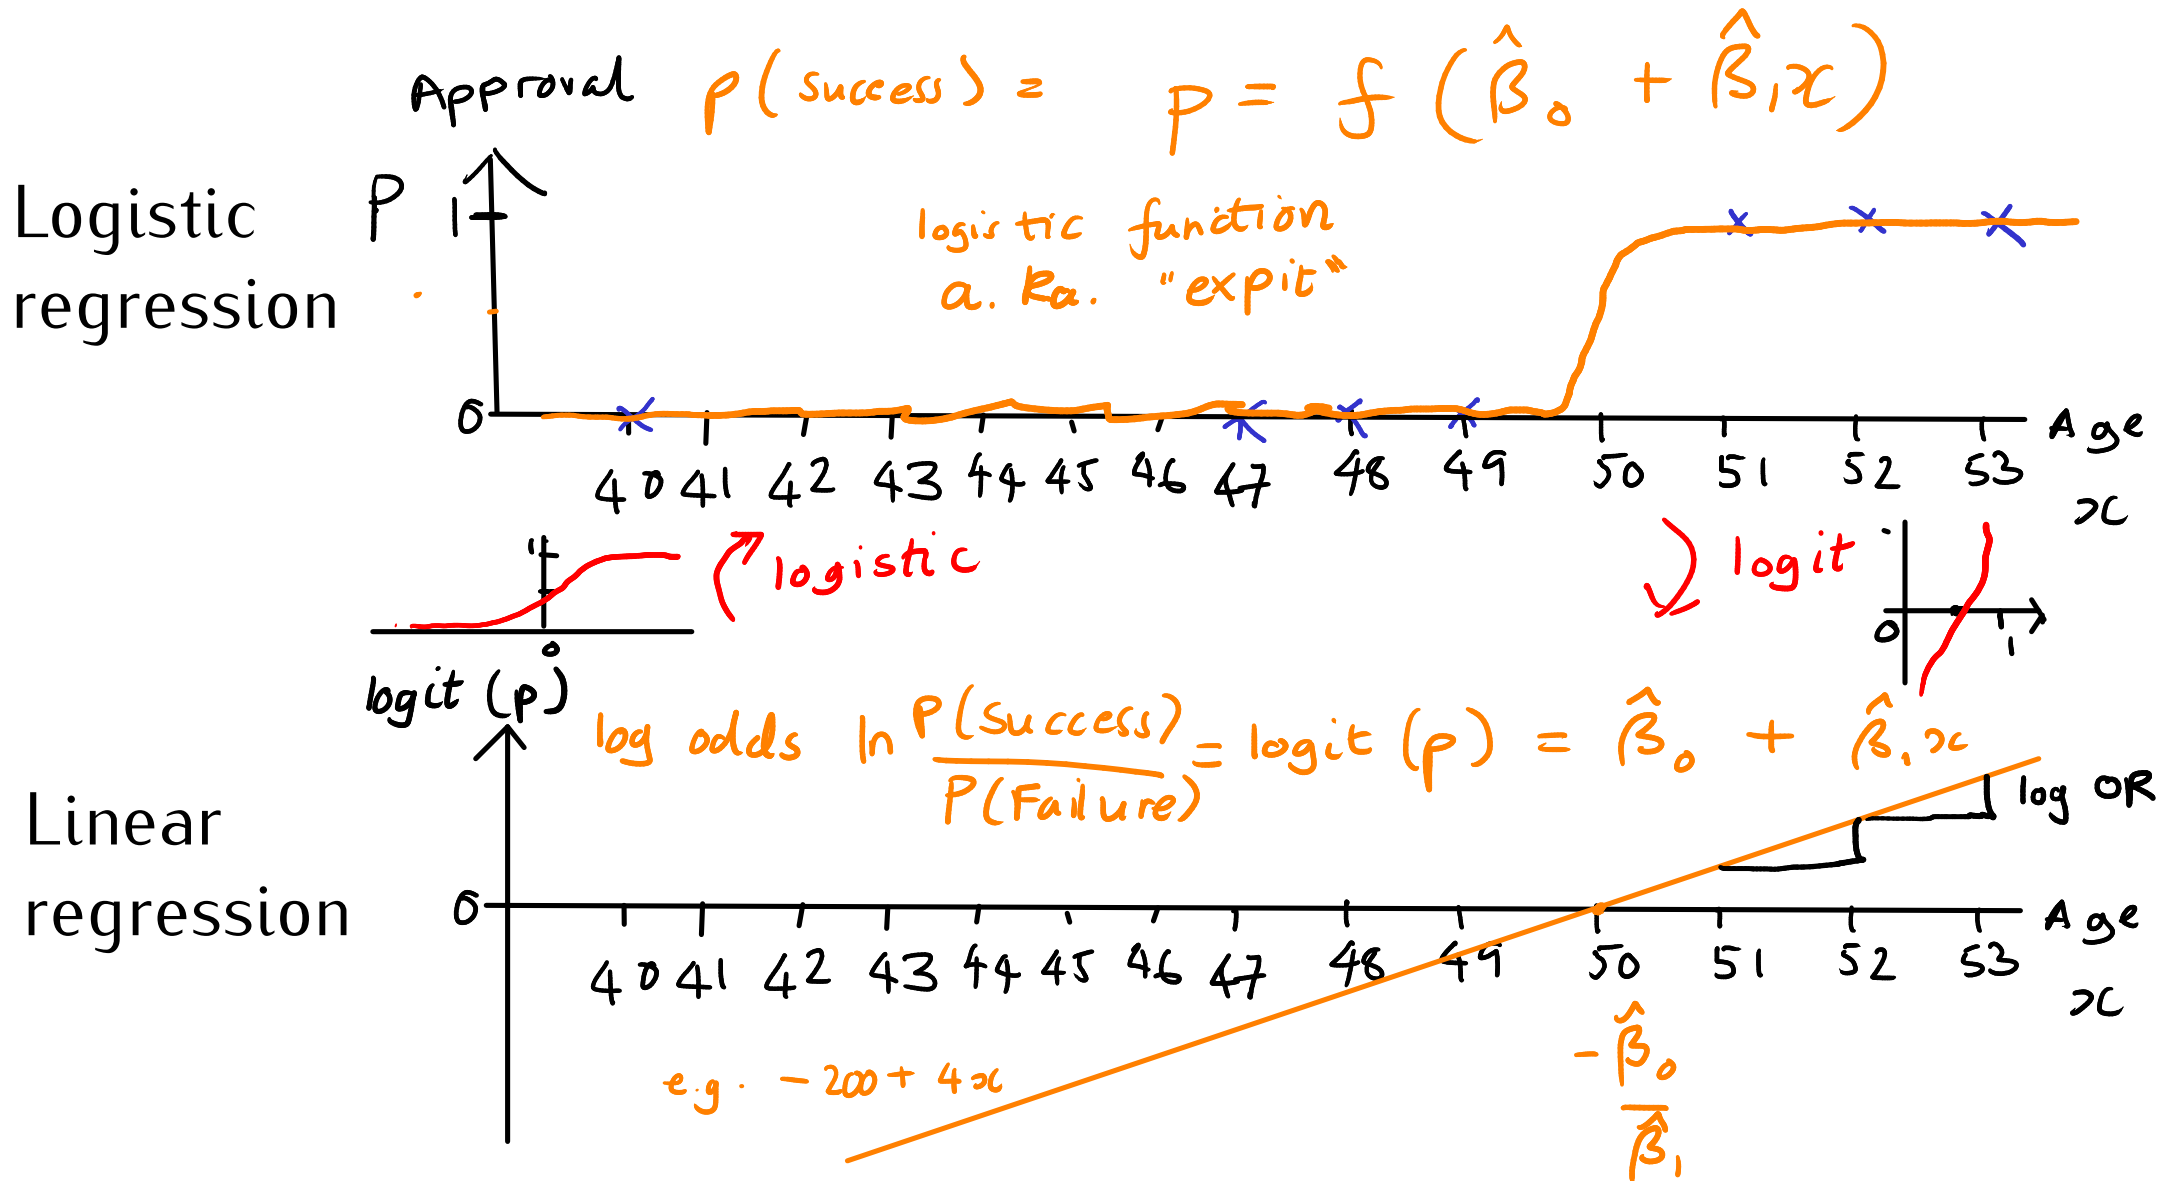 Approval p(success) = p = f(β̂₀ + β̂₁x)
Logistic
regression
P 1
logistic function
a.ka. "expit"
0
Age
40 41 42 43 44 45 46 47 48 49 50 51 52 53
x
1
logistic
logit
0
0 1
logit (p)
log odds ln P(Success)/P(Failure) = logit (p) = β̂₀ + β̂₁x
log OR
Linear
regression
0
Age
40 41 42 43 44 45 46 47 48 49 50 51 52 53
x
e.g. -200 + 4x
-β̂₀/β̂₁